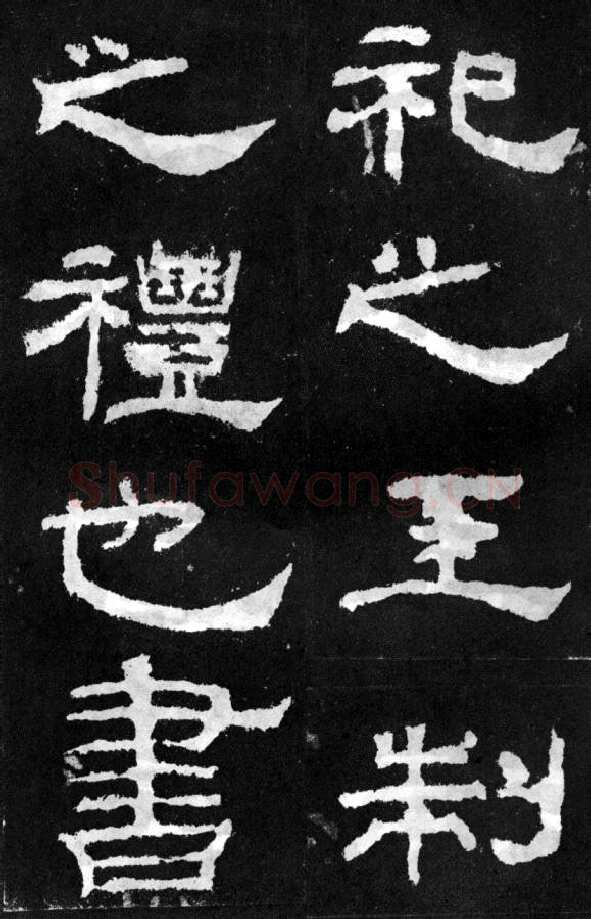 祀之王制
之禮也書
Shufawang.CN